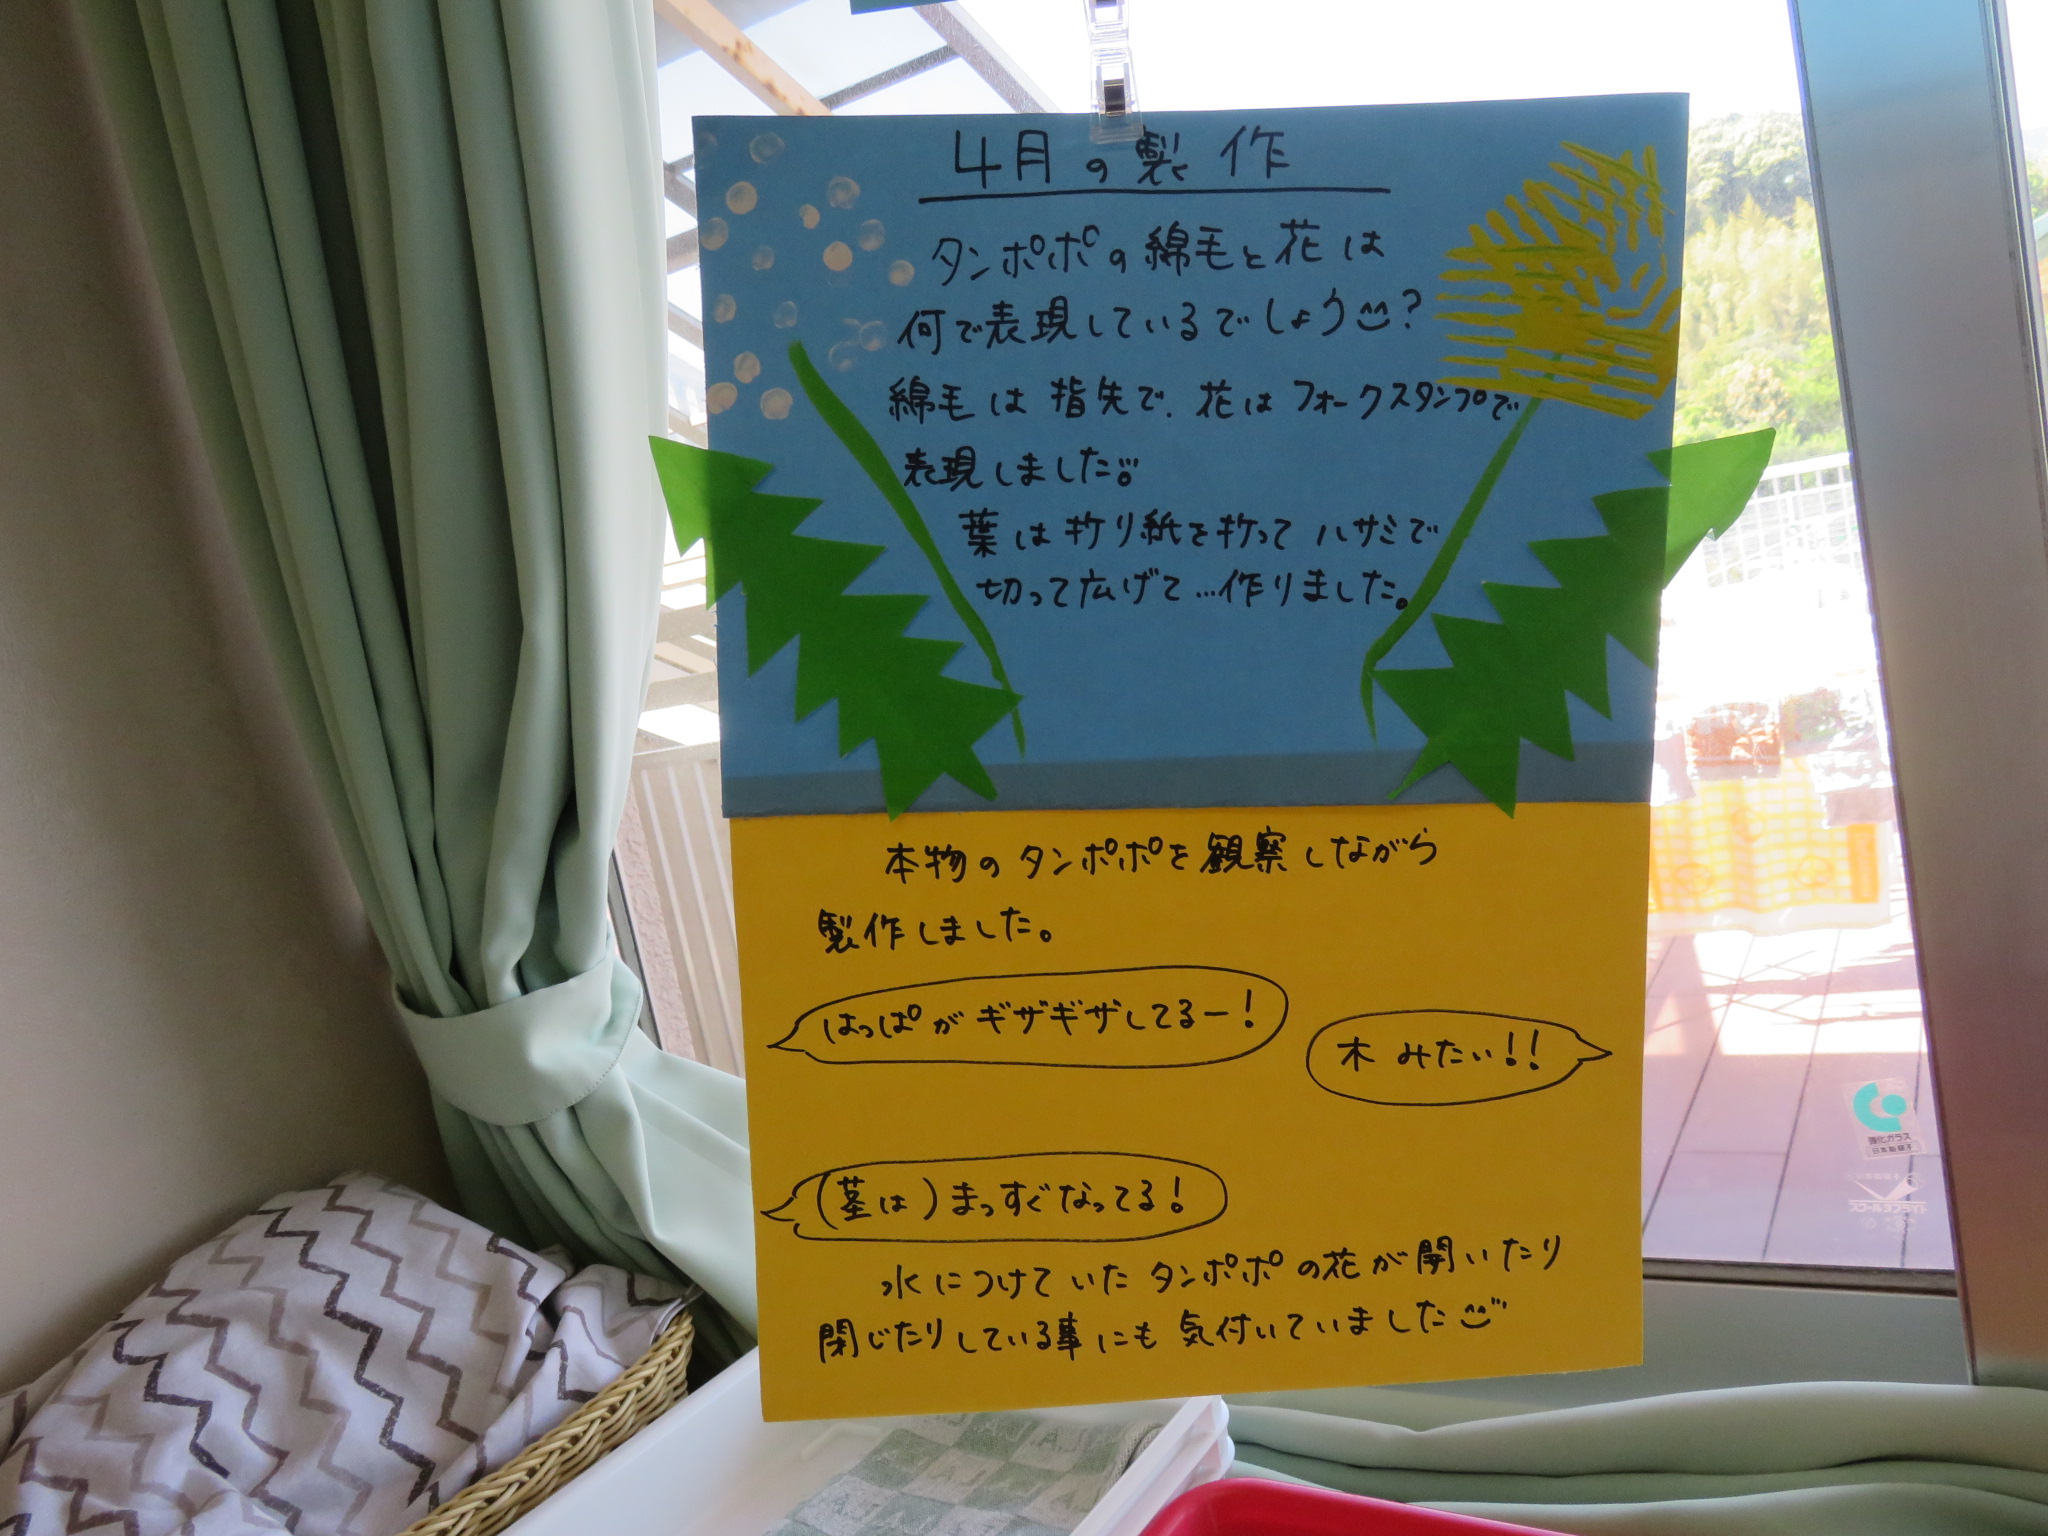 4月の製作
タンポポの綿毛と花は
何で表現しているでしょう?
綿毛は指先で、花はフォークスタンプで
表現しました。
葉は折り紙を折ってハサミで
切って広げて…作りました。
本物のタンポポを観察しながら
製作しました。
はっぱがギザギザしてるー!
木みたい!!
(茎は)まっすぐなってる!
水につけていたタンポポの花が開いたり
閉じたりしている事にも気付いていました
強化ガラス